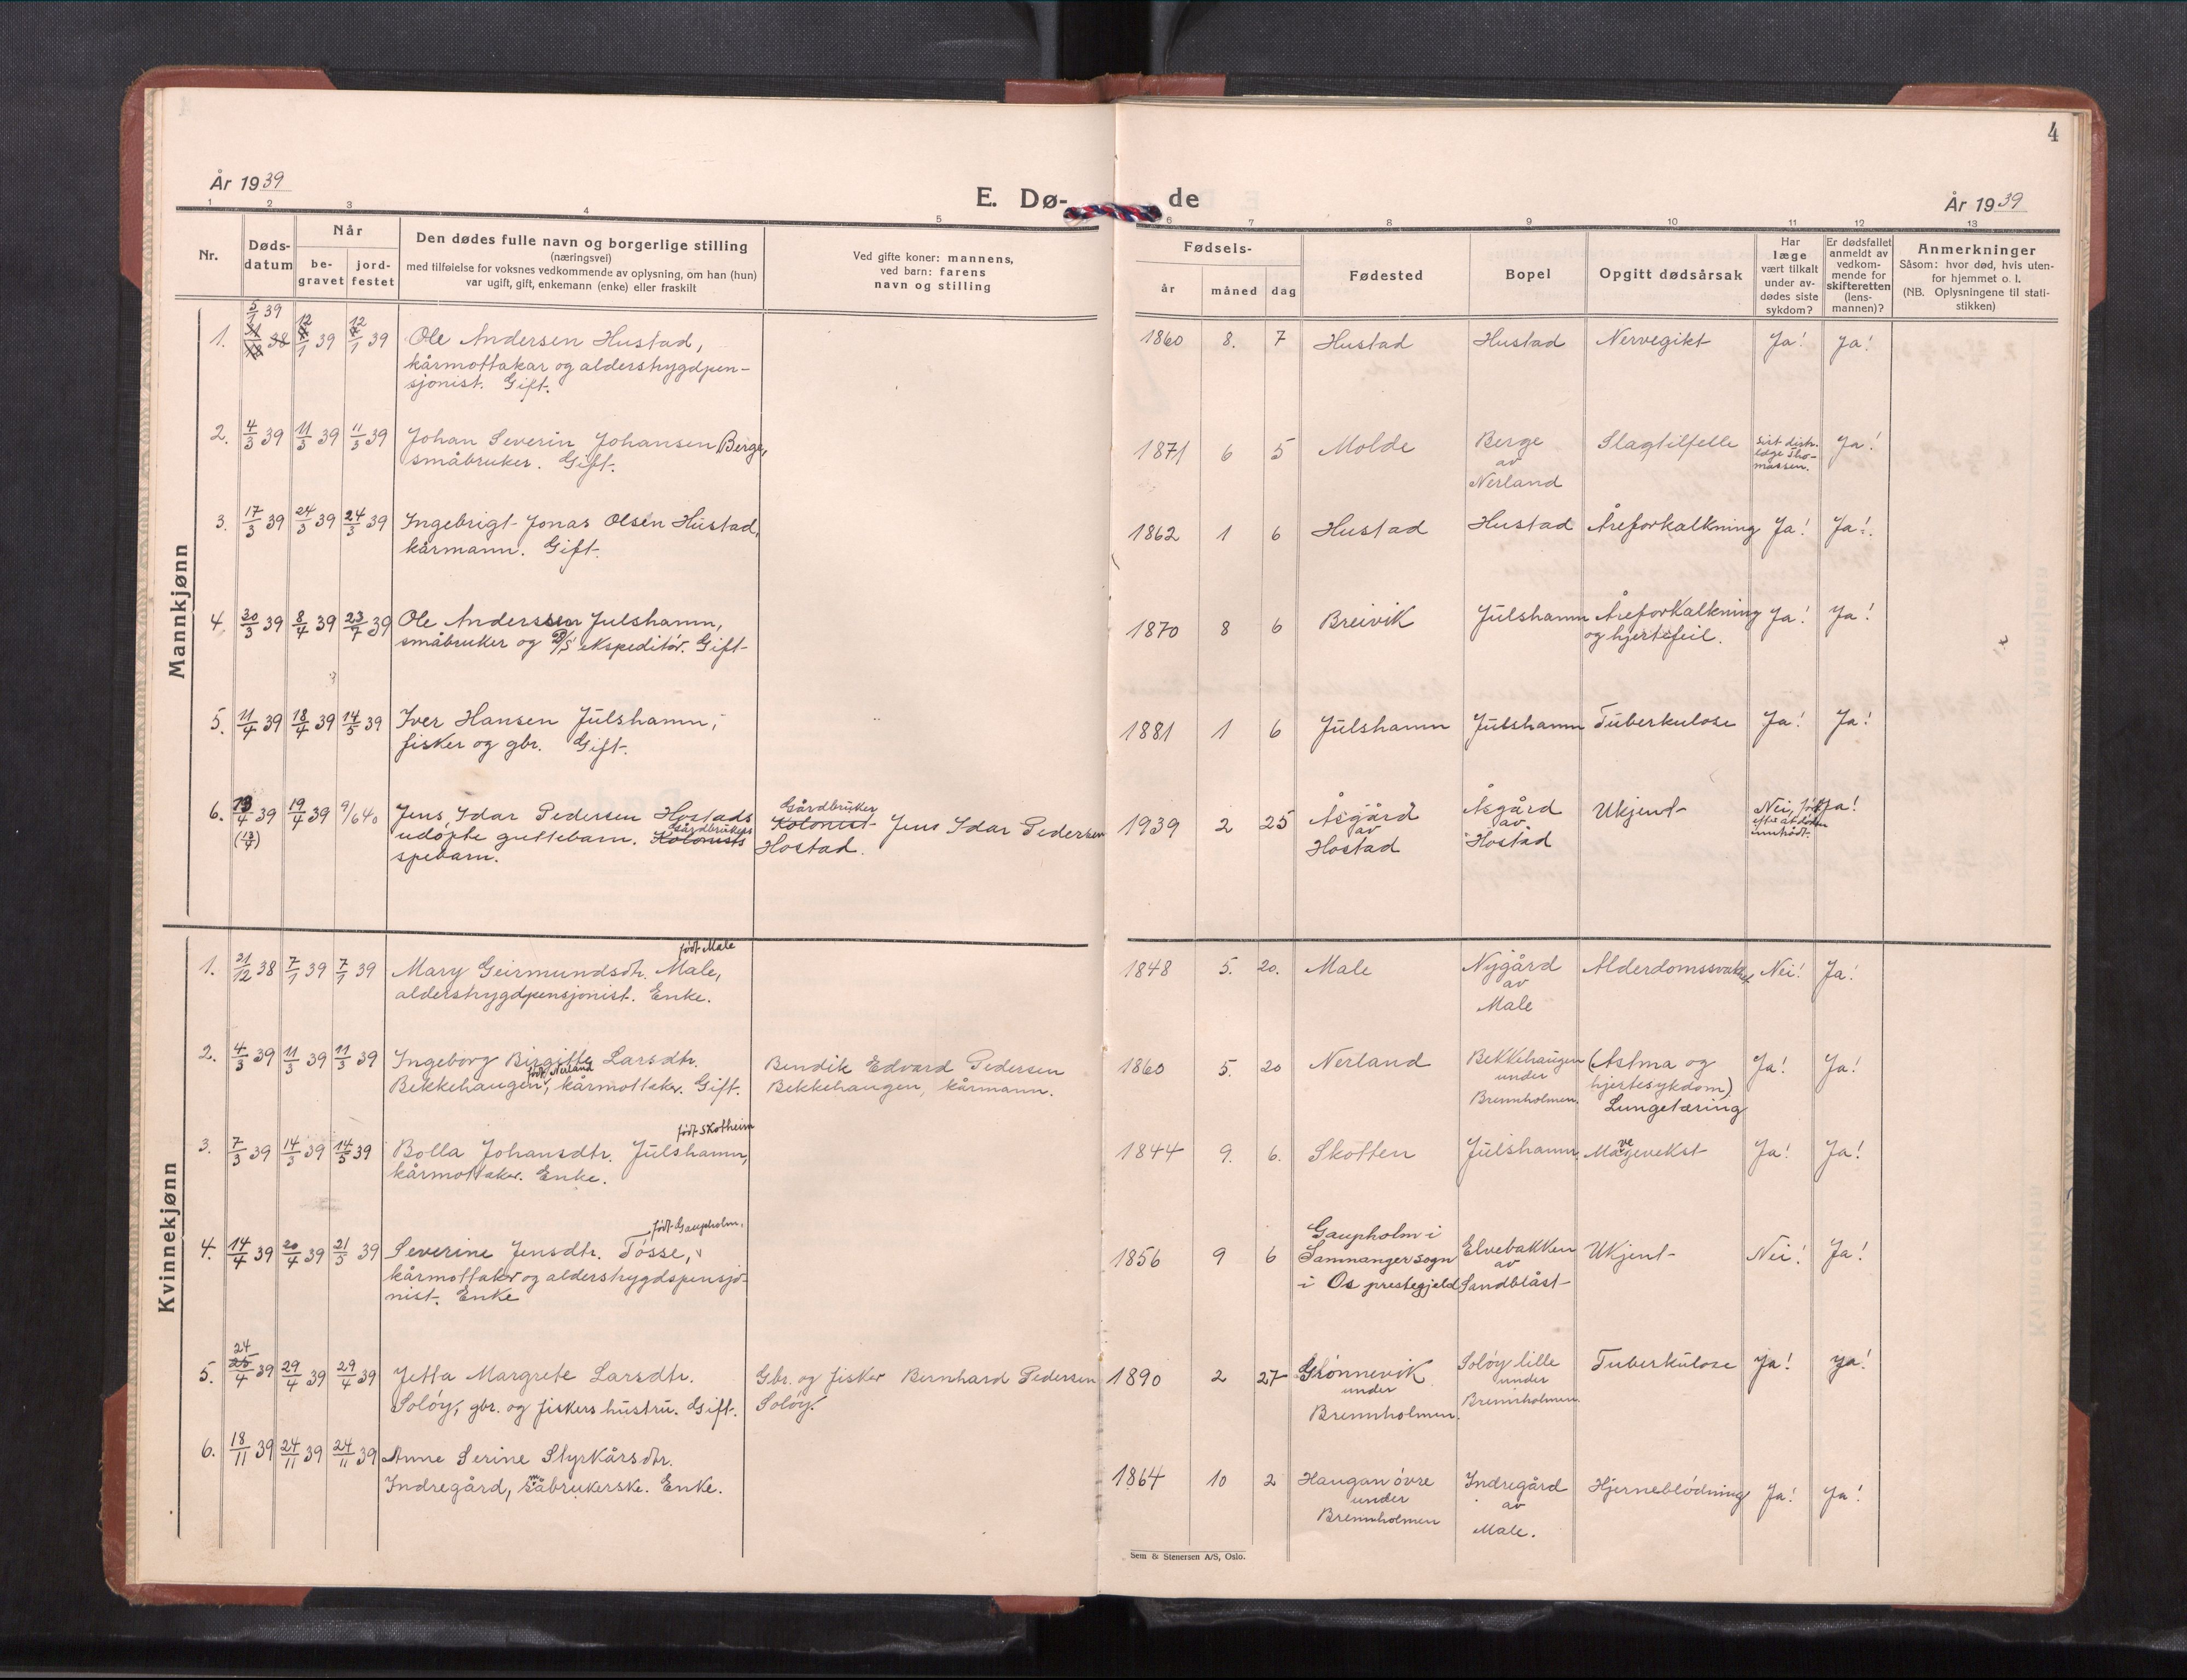 4
År 1939
E. Dø-
de
År 1939
1 2 3 4 5 6 7 8 9 10 11 12 13
Nr.
Døds-
datum
Når
be-
gravet
jord-
festet
Den dødes fulle navn og borgerlige stilling
(næringsvei)
med tilføielse for voksnes vedkommende av oplysning, om han (hun)
var ugift, gift, enkemann (enke) eller fraskilt
Ved gifte koner: mannens,
ved barn: farens
navn og stilling
Fødsels-
år måned dag
Fødested
Bopel
Opgitt dødsårsak
Har
læge
vært tilkalt
under av-
dødes siste
sykdom?
Er dødsfallet
anmeldt av
vedkom-
mende for
skifteretten
(lens-
mannen)?
Anmerkninger
Såsom: hvor død, hvis uten-
for hjemmet o. l.
(NB. Oplysningene til stati-
stikken)
Mannkjønn
5/1 39
1. 12/1 39 12/1 39 Ole Andersen Hustad, 1860 8. 7 Hustad Hustad Nervegikt Ja! Ja!
kårmottakar og alderstrygdpen-
sjonist. Gift.
2. 4/3 39 11/3 39 11/3 39 Johan Severin Johansen Berge, 1871 6 5 Molde Berge Slagtilfelle Sist distr. Ja!
småbruker. Gift. av læge Tho-
Nerland massen.
3. 17/3 39 24/3 39 24/3 39 Ingebrigt Jonas Olsen Hustad, 1862 1 6 Hustad Hustad Åreforkalkning Ja! Ja!
kårmann. Gift.
4. 30/3 39 8/4 39 23/7 39 Ole Anderssen Julshamn, 1870 8 6 Breivik Julshamn Åreforkalkning Ja! Ja!
småbruker og D/S ekspeditør. Gift og hjertefeil.
5. 11/4 39 18/4 39 14/5 39 Iver Hansen Julshamn, 1881 1 6 Julshamn Julshamn Tuberkulose Ja! Ja!
fisker og gbr. Gift.
Gårdbruker
6. 13/4 39 19/4 39 9/6 40 Jens Idar Pedersen Hostads Kolonist Jens Idar Pedersen 1939 2 25 Åsgård Åsgård Ukjent Nei, først Ja!
(13/4) udøpte guttebarn. Gårdbrukers Kolonists Hostad. av av efter at døden
spebarn. Hostad Hostad inntrådt.
Kvinnekjønn
født Male
1. 21/12 38 7/1 39 7/1 39 Mary Geirmundsdtr. Male, 1848 5. 20. Male Nygård Alderdomssvakhet Nei! Ja!
alderstrygdpensjonist. Enke. av
Male
2. 4/3 39 11/3 39 11/3 39 Ingeborg Birgitte Larsdtr. Bendik Edvard Pedersen 1860 5. 20 Nerland Bekkehaugen (Astma og Ja! Ja!
født Nerland
Bekkehaugen, kårmottaker. Gift. Bekkehaugen, kårmann. under hjertesykdom)
Brennholmen. Lungetæring
født Skotheim
3. 7/3 39 14/3 39 14/5 39 Bolla Johansdtr. Julshamn, 1844 9. 6. Skotten Julshamn. Mavevekst Ja! Ja!
kårmottaker. Enke.
født Gaupholm.
4. 14/4 39 20/4 39 21/5 39 Severine Jensdtr. Tøsse, 1856 9 6 Gaupholm i Elvebakken Ukjent Nei! Ja!
kårmottaker og alderstrygdspensjo- Samnanger sogn av
nist. Enke i Os prestegjeld Sandblåst
24
5. 25/4 39 29/4 39 29/4 39 Jetta Margrete Larsdtr. Gbr. og fisker Bernhard Pedersen 1890 2 27 Grønnevik Soløy lille Tuberkulose Ja! Ja!
Soløy, gbr. og fiskers hustru. Gift. Soløy. under under
Brennholmen. Brennholmen.
6. 18/11 39 24/11 39 24/11 39 Anne Serine Styrkårsdtr. 1864 10 2 Haugan øvre Indregård Hjerneblødning Ja! Ja!
Indregård, småbrukerske. Enke. under av
Brennholmen Male.
Sem & Stenersen A/S, Oslo.